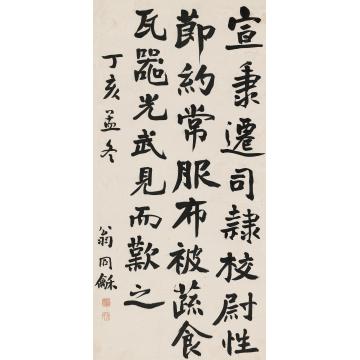 宣秉遷司隸校尉性
節約常服布被蔬食
瓦器光武見而歎之
丁亥孟冬
翁同龢